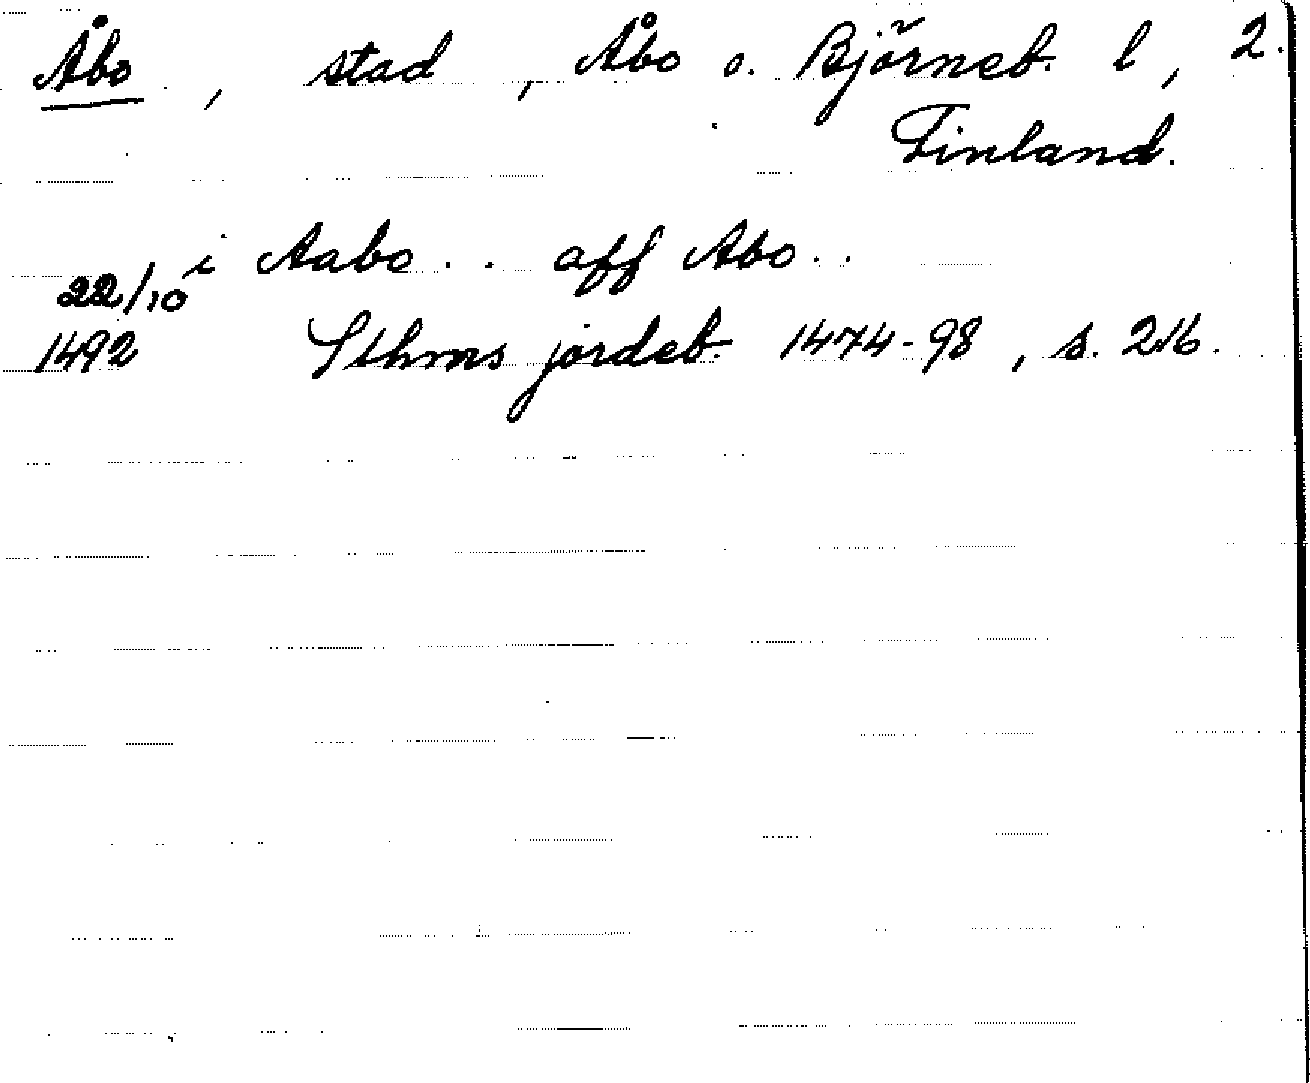 Åbo, stad, Åbo o. Björneb. l, 2.
Finland.
i Aabo.. aff Abo..
22/10
1492 Sthms jordeb. 1474-98, s. 216.